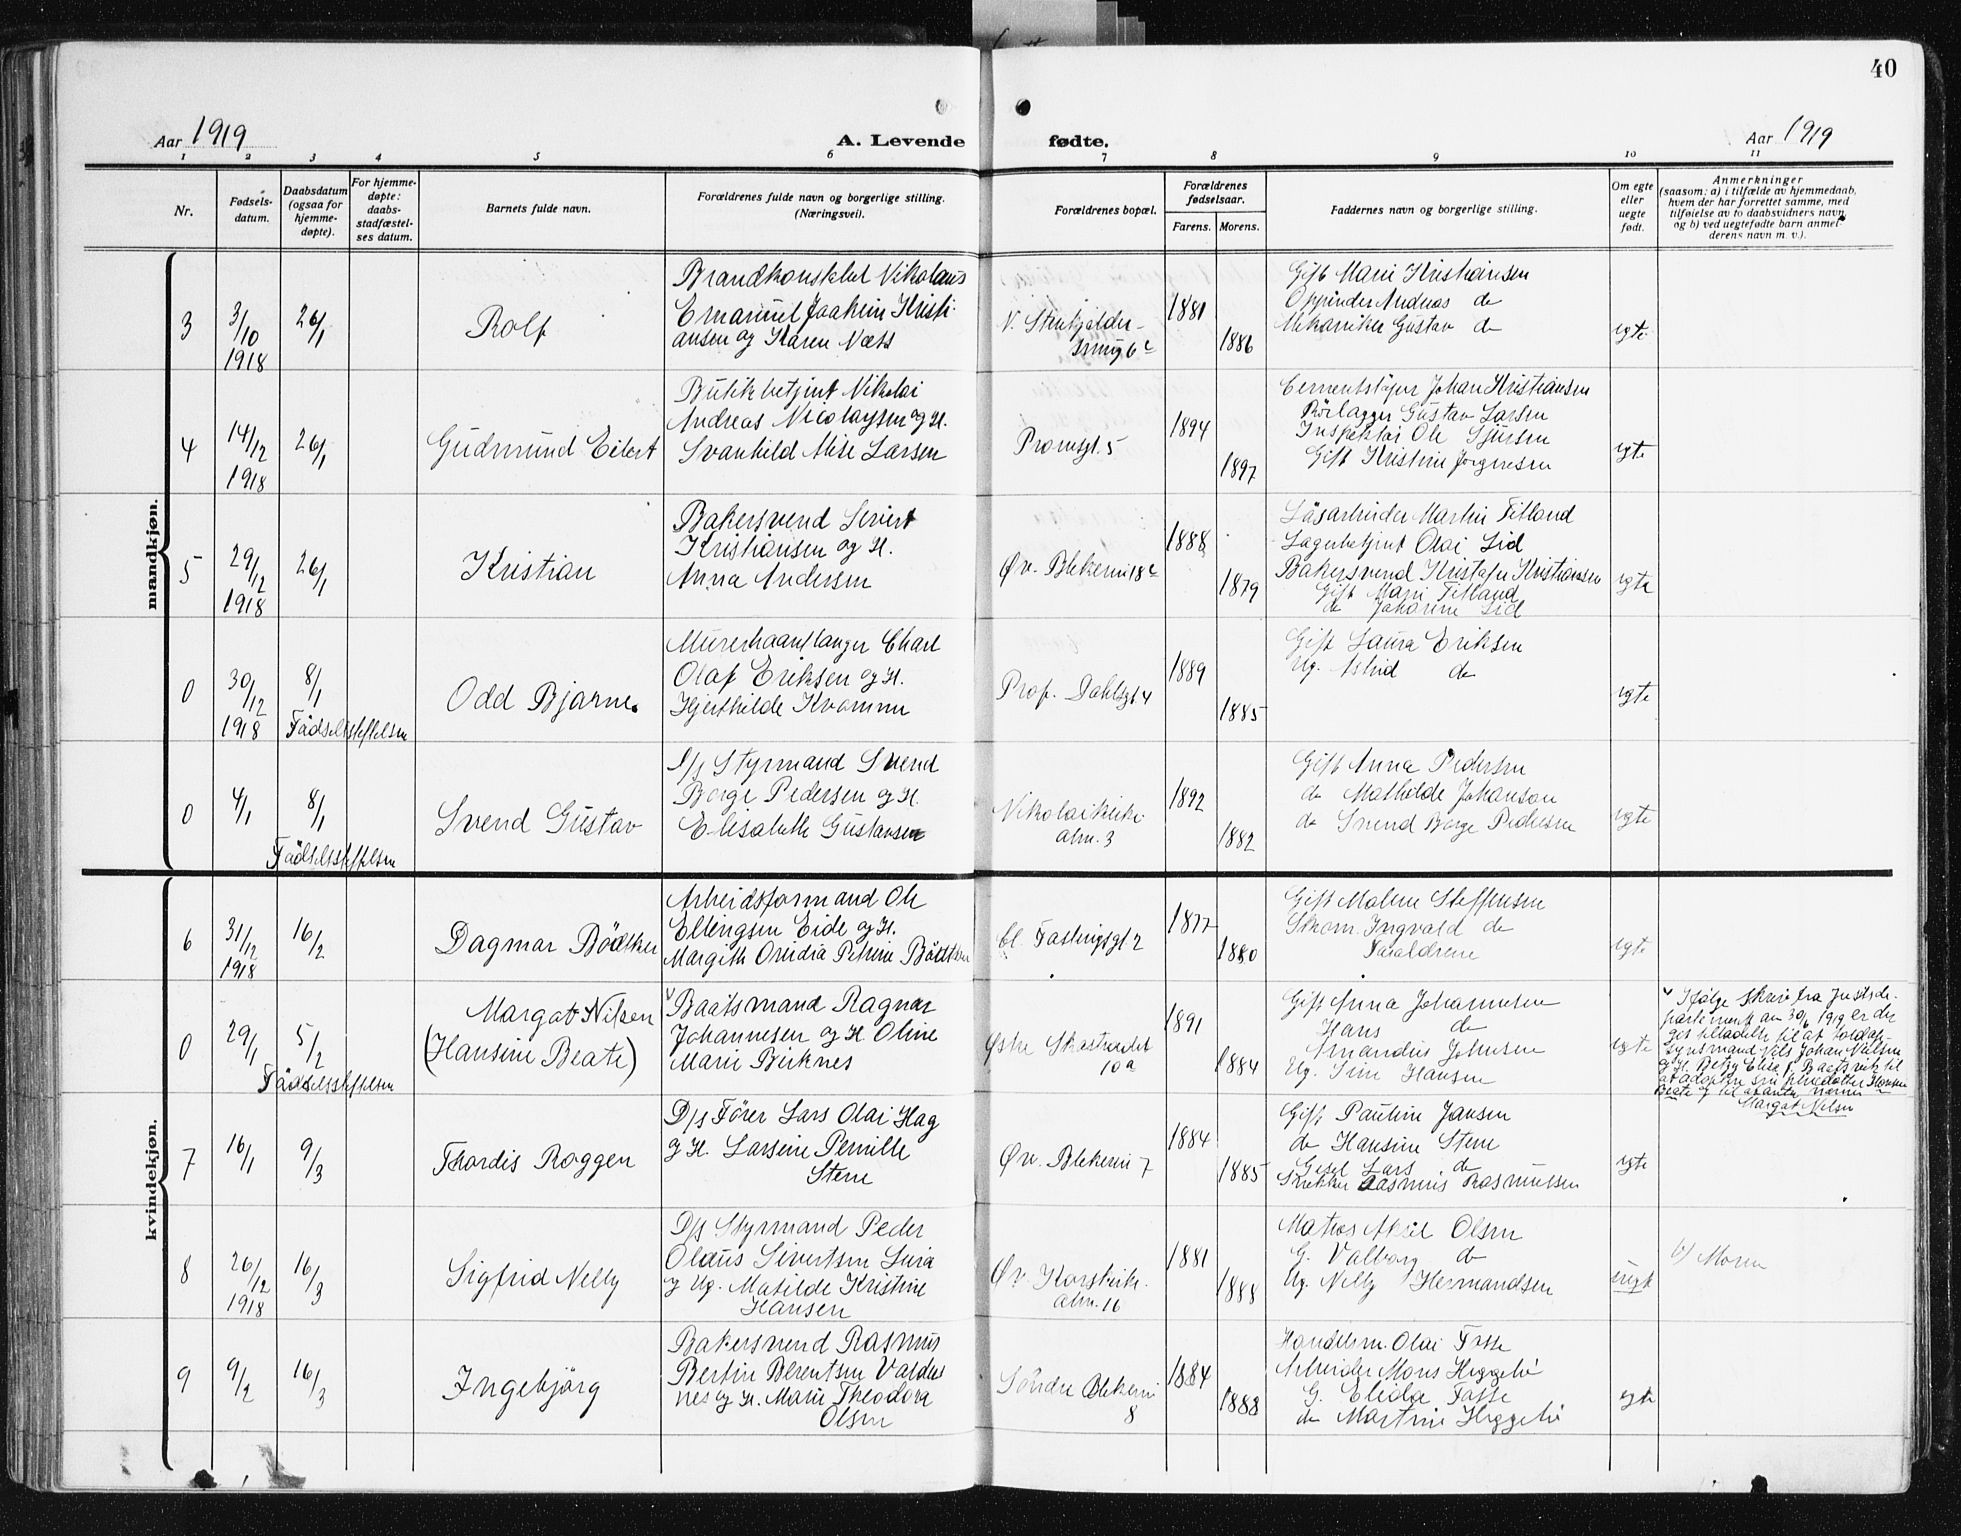 40
Aar 1919
A. Levende fødte.
Aar 1919
1 2 3 4 5 6 7 8 9 10 11
Nr.
Fødsels-
datum.
Daabsdatum
(ogsaa for
hjemme-
døpte).
For hjemme-
døpte:
daabs-
stadfæstel-
ses datum.
Barnets fulde navn.
Forældrenes fulde navn og borgerlige stilling.
(Næringsvei).
Forældrenes bopæl.
Forældrenes
fødselsaar.
Farens. Morens.
Faddernes navn og borgerlige stilling.
Om egte
eller
uegte
født.
Anmerkninger
(saasom: a) i tilfælde av hjemmedaab,
hvem der har forrettet samme, med
tilføielse av to daabsvidners navn,
og b) ved uegtefødte barn anmel-
derens navn m. v.).
mandkjøn.
3
3/10
1918
26/1
Rolf
Brandkonstabel Nikolaus
Emanuel Joakim Kristi-
ansen og Karen Næss
V. Stenkjelder-
smug 6 c
1881
1886
Gift Marie Kristiansen
Oppinder Andreas do
Mekaniker Gustav do
egte
4
14/12
1918
26/1
Gudmund Eilert
Butikbetjent Nikolai
Andreas Nicolaysen og H.
Svanhild Mise Larsen
Promsgt. 5
1894
1897
Cementstøper Johan Kristiansen
Rörlægger Gustav Larsen
Inspektör Ole Sjursen
Gift Kristine Jørgensen
egte
5
29/12
1918
26/1
Kristian
Bakersvend Severt
Kristiansen og H.
Anna Andersen
Øv. Blekevei 18 c
1888
1879
Løsarbeider Martin Titland
Lagerbetjent Olai Lid
Bakersvend Kristofer Kristiansen
Gift Marie Titland
do Johanne Lid
egte
0
30/12
1918
8/1
Födselsstiftelsen
Odd Bjarne.
Murerhaandlanger Charl
Olaf Eriksen og H.
Hjerthilde Kvamme
Prof. Dahlsgt 4
1889
1885
Gift Laura Eriksen
Ug. Astrid do
egte
0
4/1
8/1
Födselsstiftelsen
Svend Gustav
S/s Styrmand Svend
Borge Pedersen og H.
Elisabeth Gustavsen
Nikolaikirke
alm. 3
1892
1882
Gift Anna Pedersen
do Mathilde Johanson
do Svend Borge Pedersen
egte
kvindekjøn.
6
31/12
1918
16/2
Dagmar Bödtker
Arbeidsformand Ole
Ellingsen Eide og H.
Margith Ovidia Petrine Bödtker
Cl. Fastingsgt 2
1877
1880
Gift Malene Steffensen
Skom. Ingvald do
Forældrene
egte
0
29/1
5/2
Födselsstiftelsen
Margot Nilsen
(Hansine Beate)
v Baatsmand Ragnar
Johannesen og H. Oline
Marie Birknes
Østre Skostrædet
10 a
1891
1884
Gift Anna Johannesen
Hans do
Amandus Johnsen
Ug. Sine Hansen
egte
v Ifölge skriv fra Justisde-
partement av 30/6 1919 er der
git tilladelse til at toldop-
synsmand Nils Johan Nilsen
og H. Betzy Elise f. Baatsvik til
at adoptere sin pleiedatter Hansine
Beate og til at anta navnet
Margot Nilsen
7
16/1
9/3
Thordis Roggen
D/s Förer Lars Olai Hag
og H. Larsine Pernille
Stene
Øv. Blekevei 7
1884
1885
Gift Pauline Jansen
do Hansine Stene
Gesel Lars do
Snekker Rasmus Rasmussen
egte
8
26/12
1918
16/3
Sigfrid Nelly
D/s Styrmand Peder
Olaus Sivertsen Leira
og Ug. Matilde Kristine
Hansen
Øv. Korskirke-
alm. 16
1881
1888
Matros Aksel Olsen
G. Valborg do
Ug. Nelly Hermandsen
uegte
b) Moren
9
9/2
16/3
Ingebjörg
Bakersvend Rasmus
Bertin Berentsen Valder-
nes og H. Marie Theodora
Olsen
Söndre Blekevei
8
1884
1888
Handelsm. Olai Fosse
Arbeider Mons Heggebö
G. Elida Fosse
do Martine Heggebö
egte